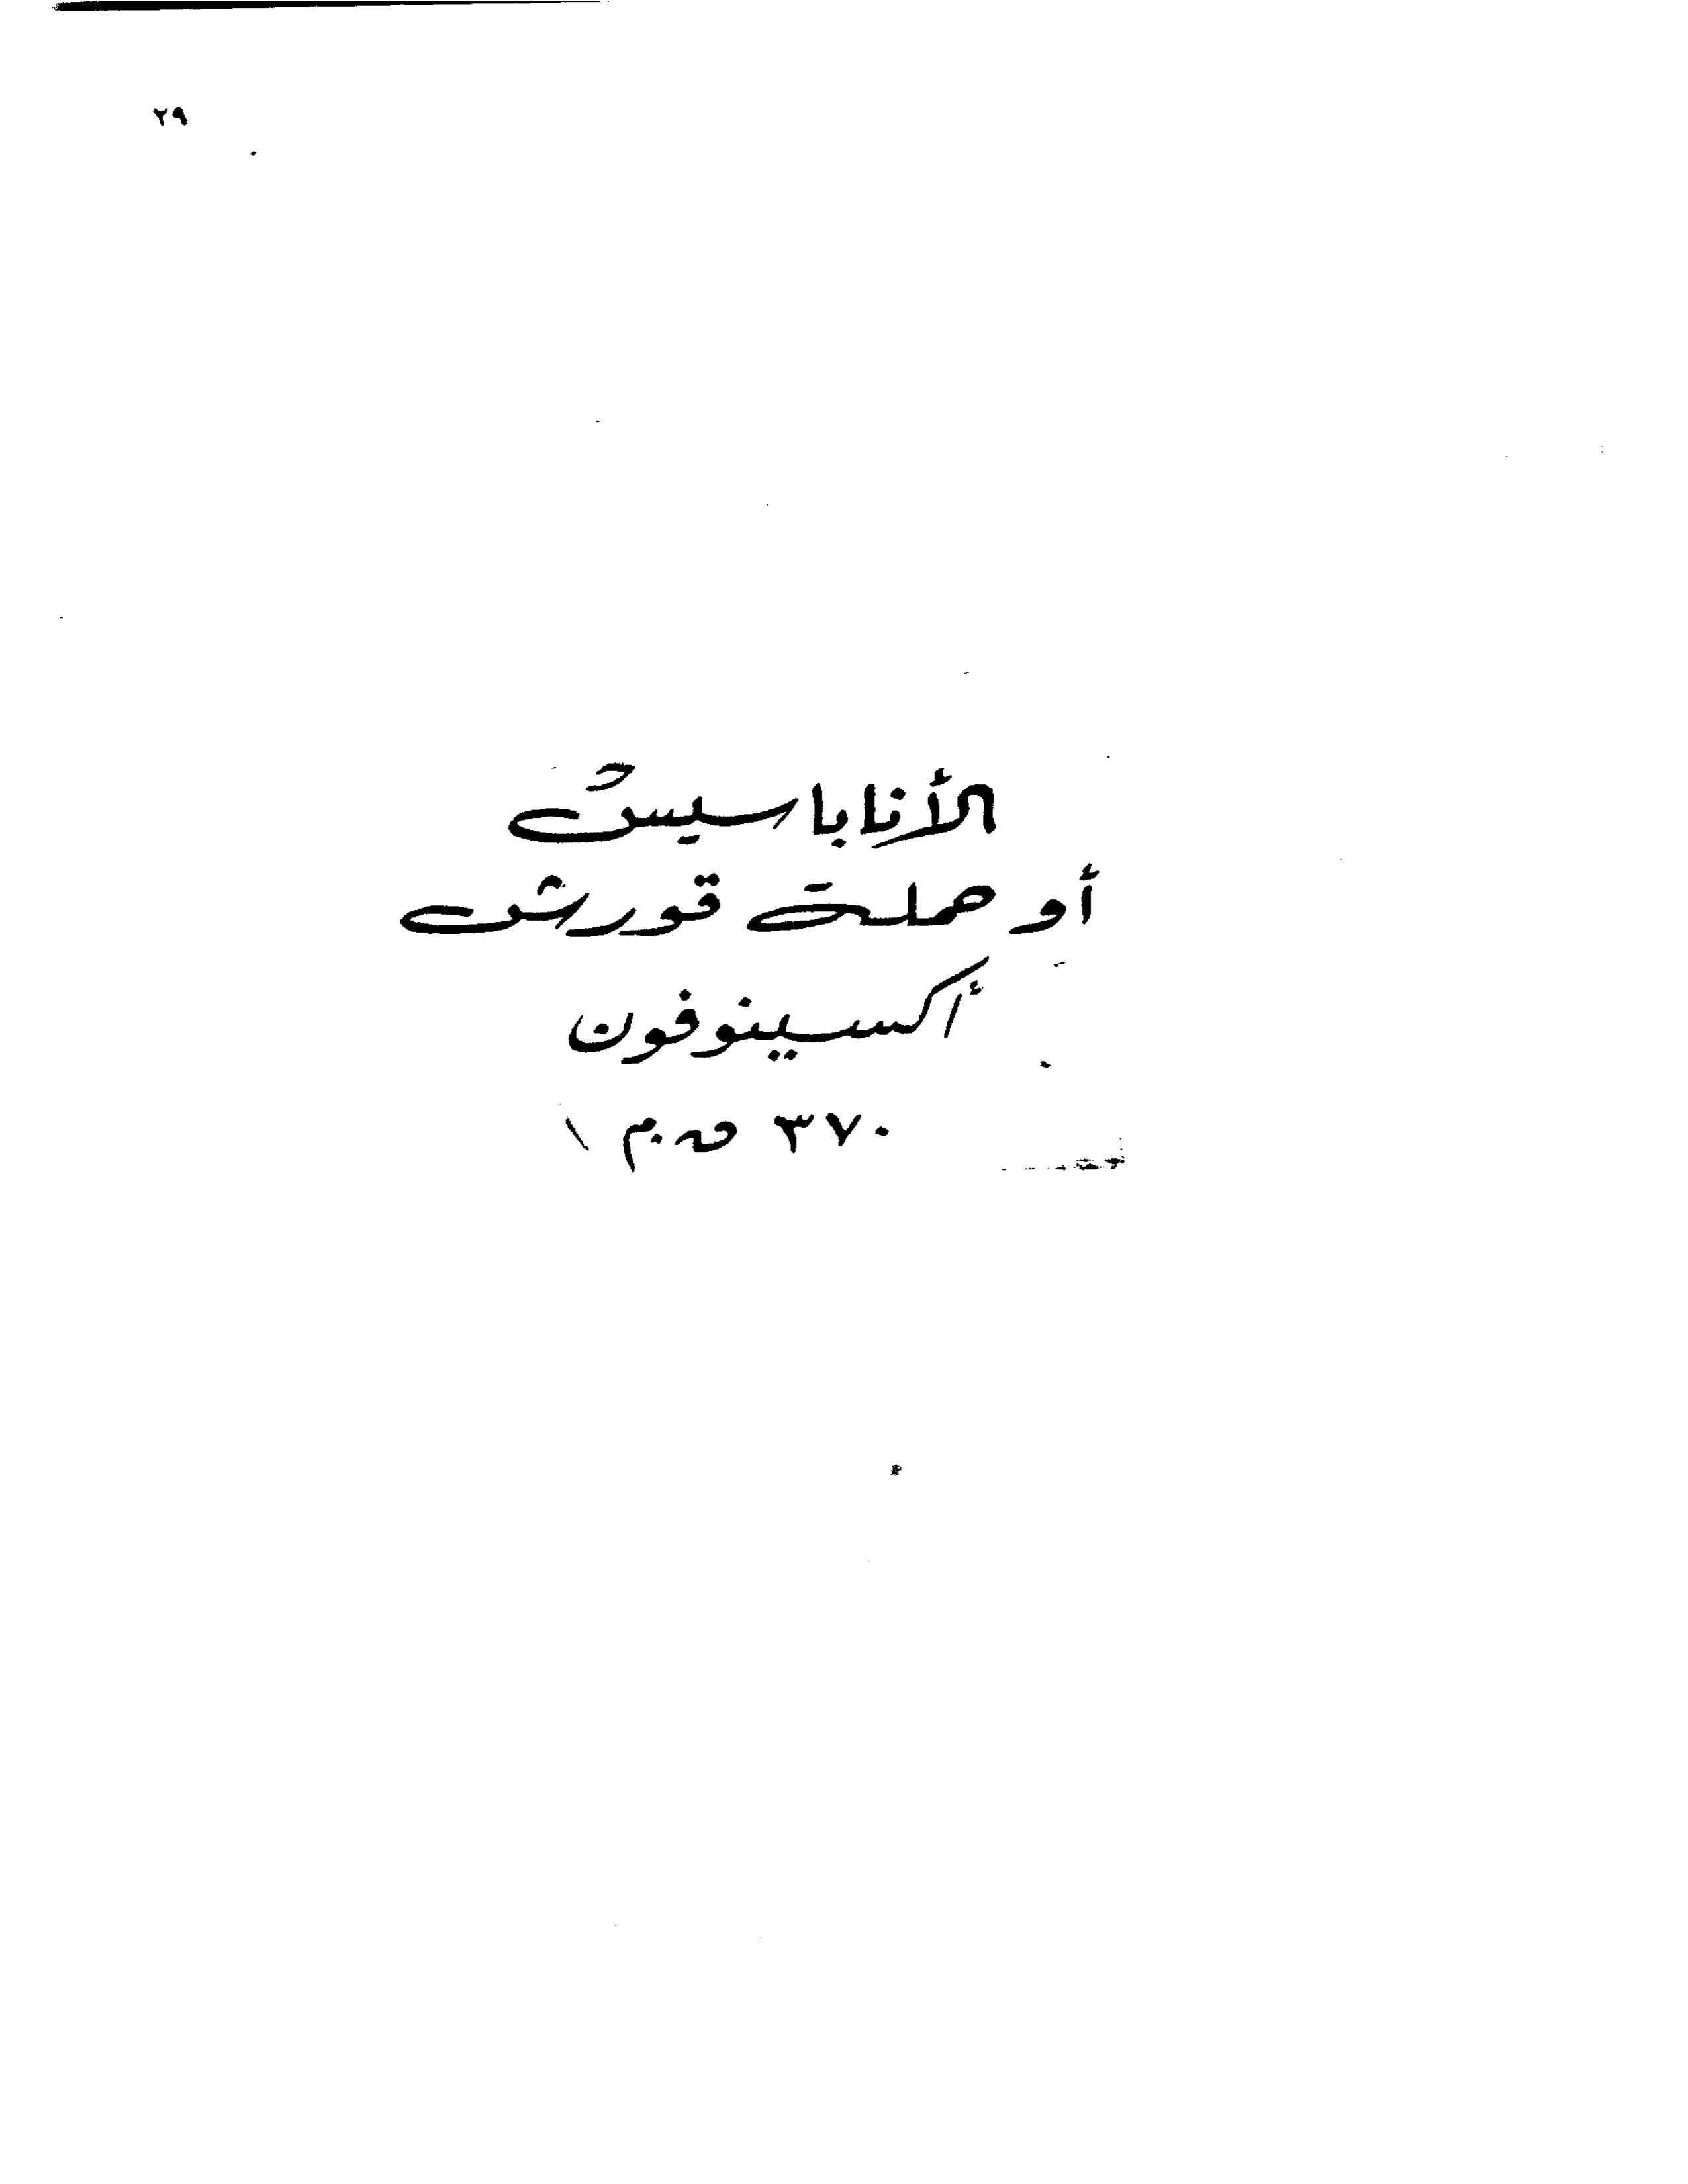 ٢٩
الأناباسيس
أو حملت قورش
أكسينوفون
٣٧٠ ق.م